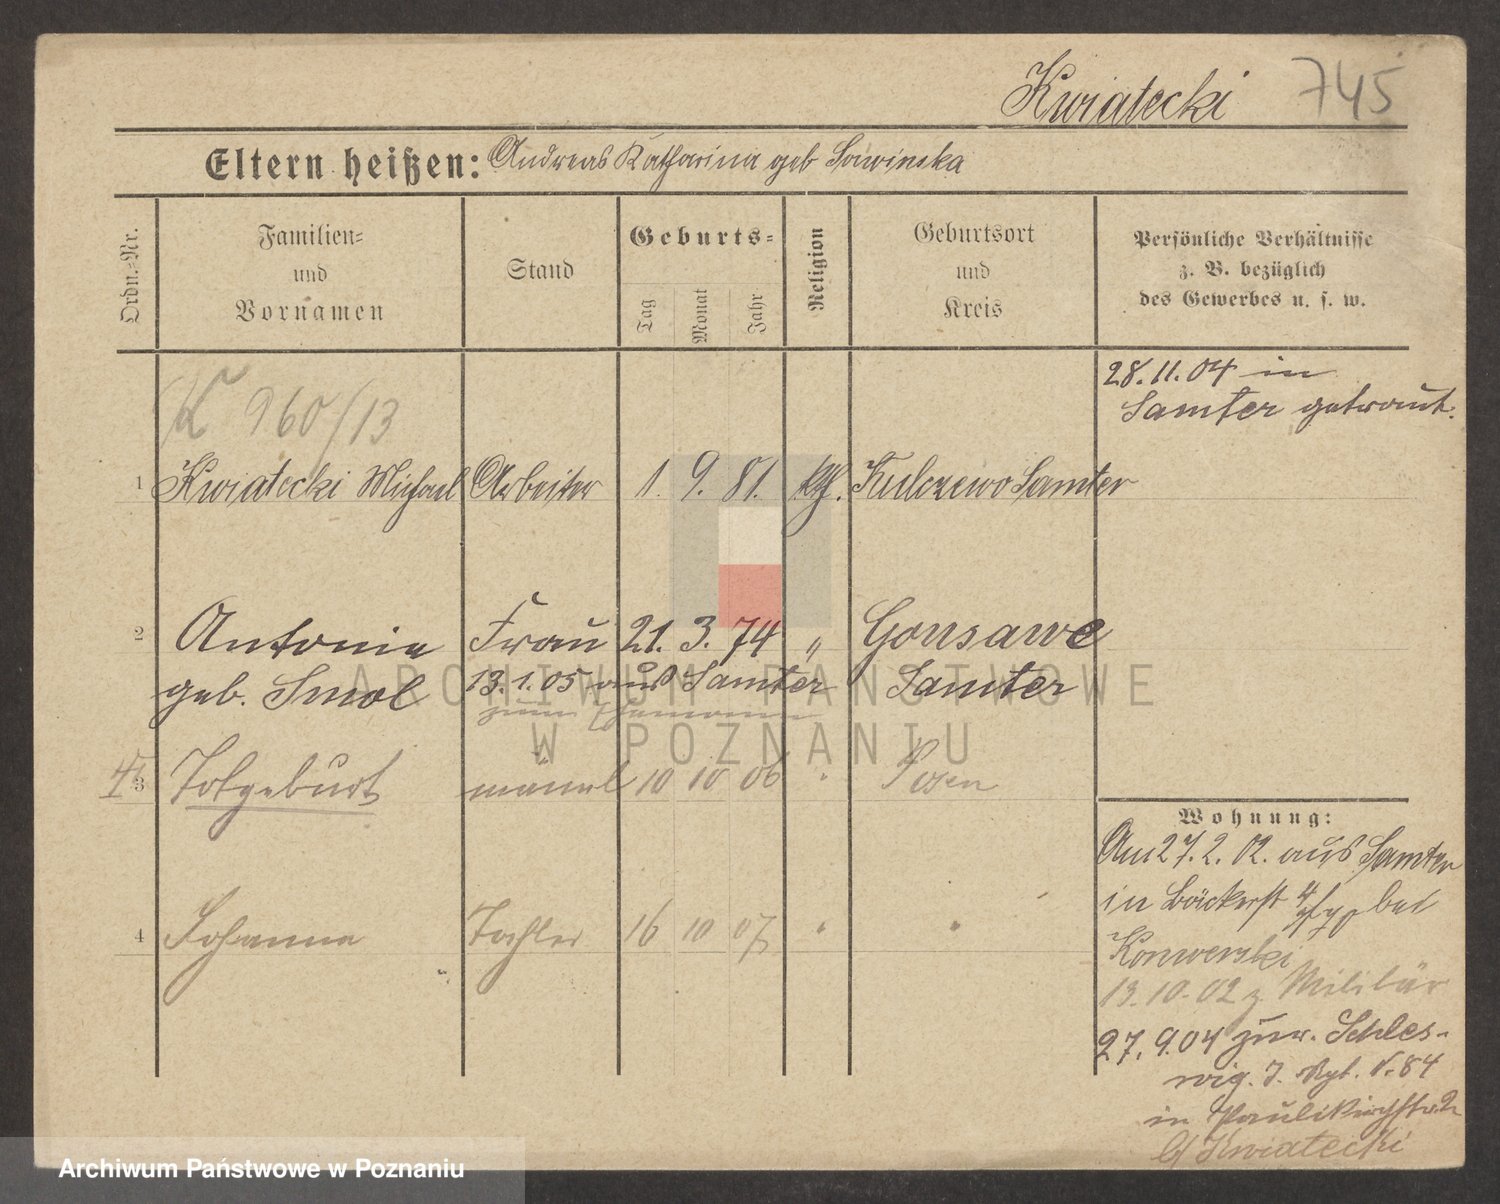 Kwiatecki 745
Eltern heißen: Andreas Katharina geb Sawinska
Ordn.-Nr.
Familien-
und
Vornamen
Stand
Geburts-
Tag
Monat
Jahr
Religion
Geburtsort
und
Kreis
Persönliche Verhältnisse
z. B. bezüglich
des Gewerbes u. s. w.
28.11.04 in
Samter getraut.
K 960/13
1 Kwiatecki Michael Arbeiter 1. 9. 81. kth. Kulczewo Samter
2 Antonie Frau 21. 3. 74 " Gonsawe
geb. Smol 13.1.05 aus Samter Samter
zum Ehemann
3 Totgeburt männl 10 10 06 " Posen
4 Johanna Tochter 16 10 07 " "
Wohnung:
Am 27.2.02. aus Samter
in Bäckerst bei
Konwerski
13.10.02 z. Militär
27.9.04 zur. Schles-
wig. I. Rgt. N. 84
in Paulikirchstr. 2
b/ Kwiatecki
ARCHIWUM PAŃSTWOWE
W POZNANIU
Archiwum Państwowe w Poznaniu